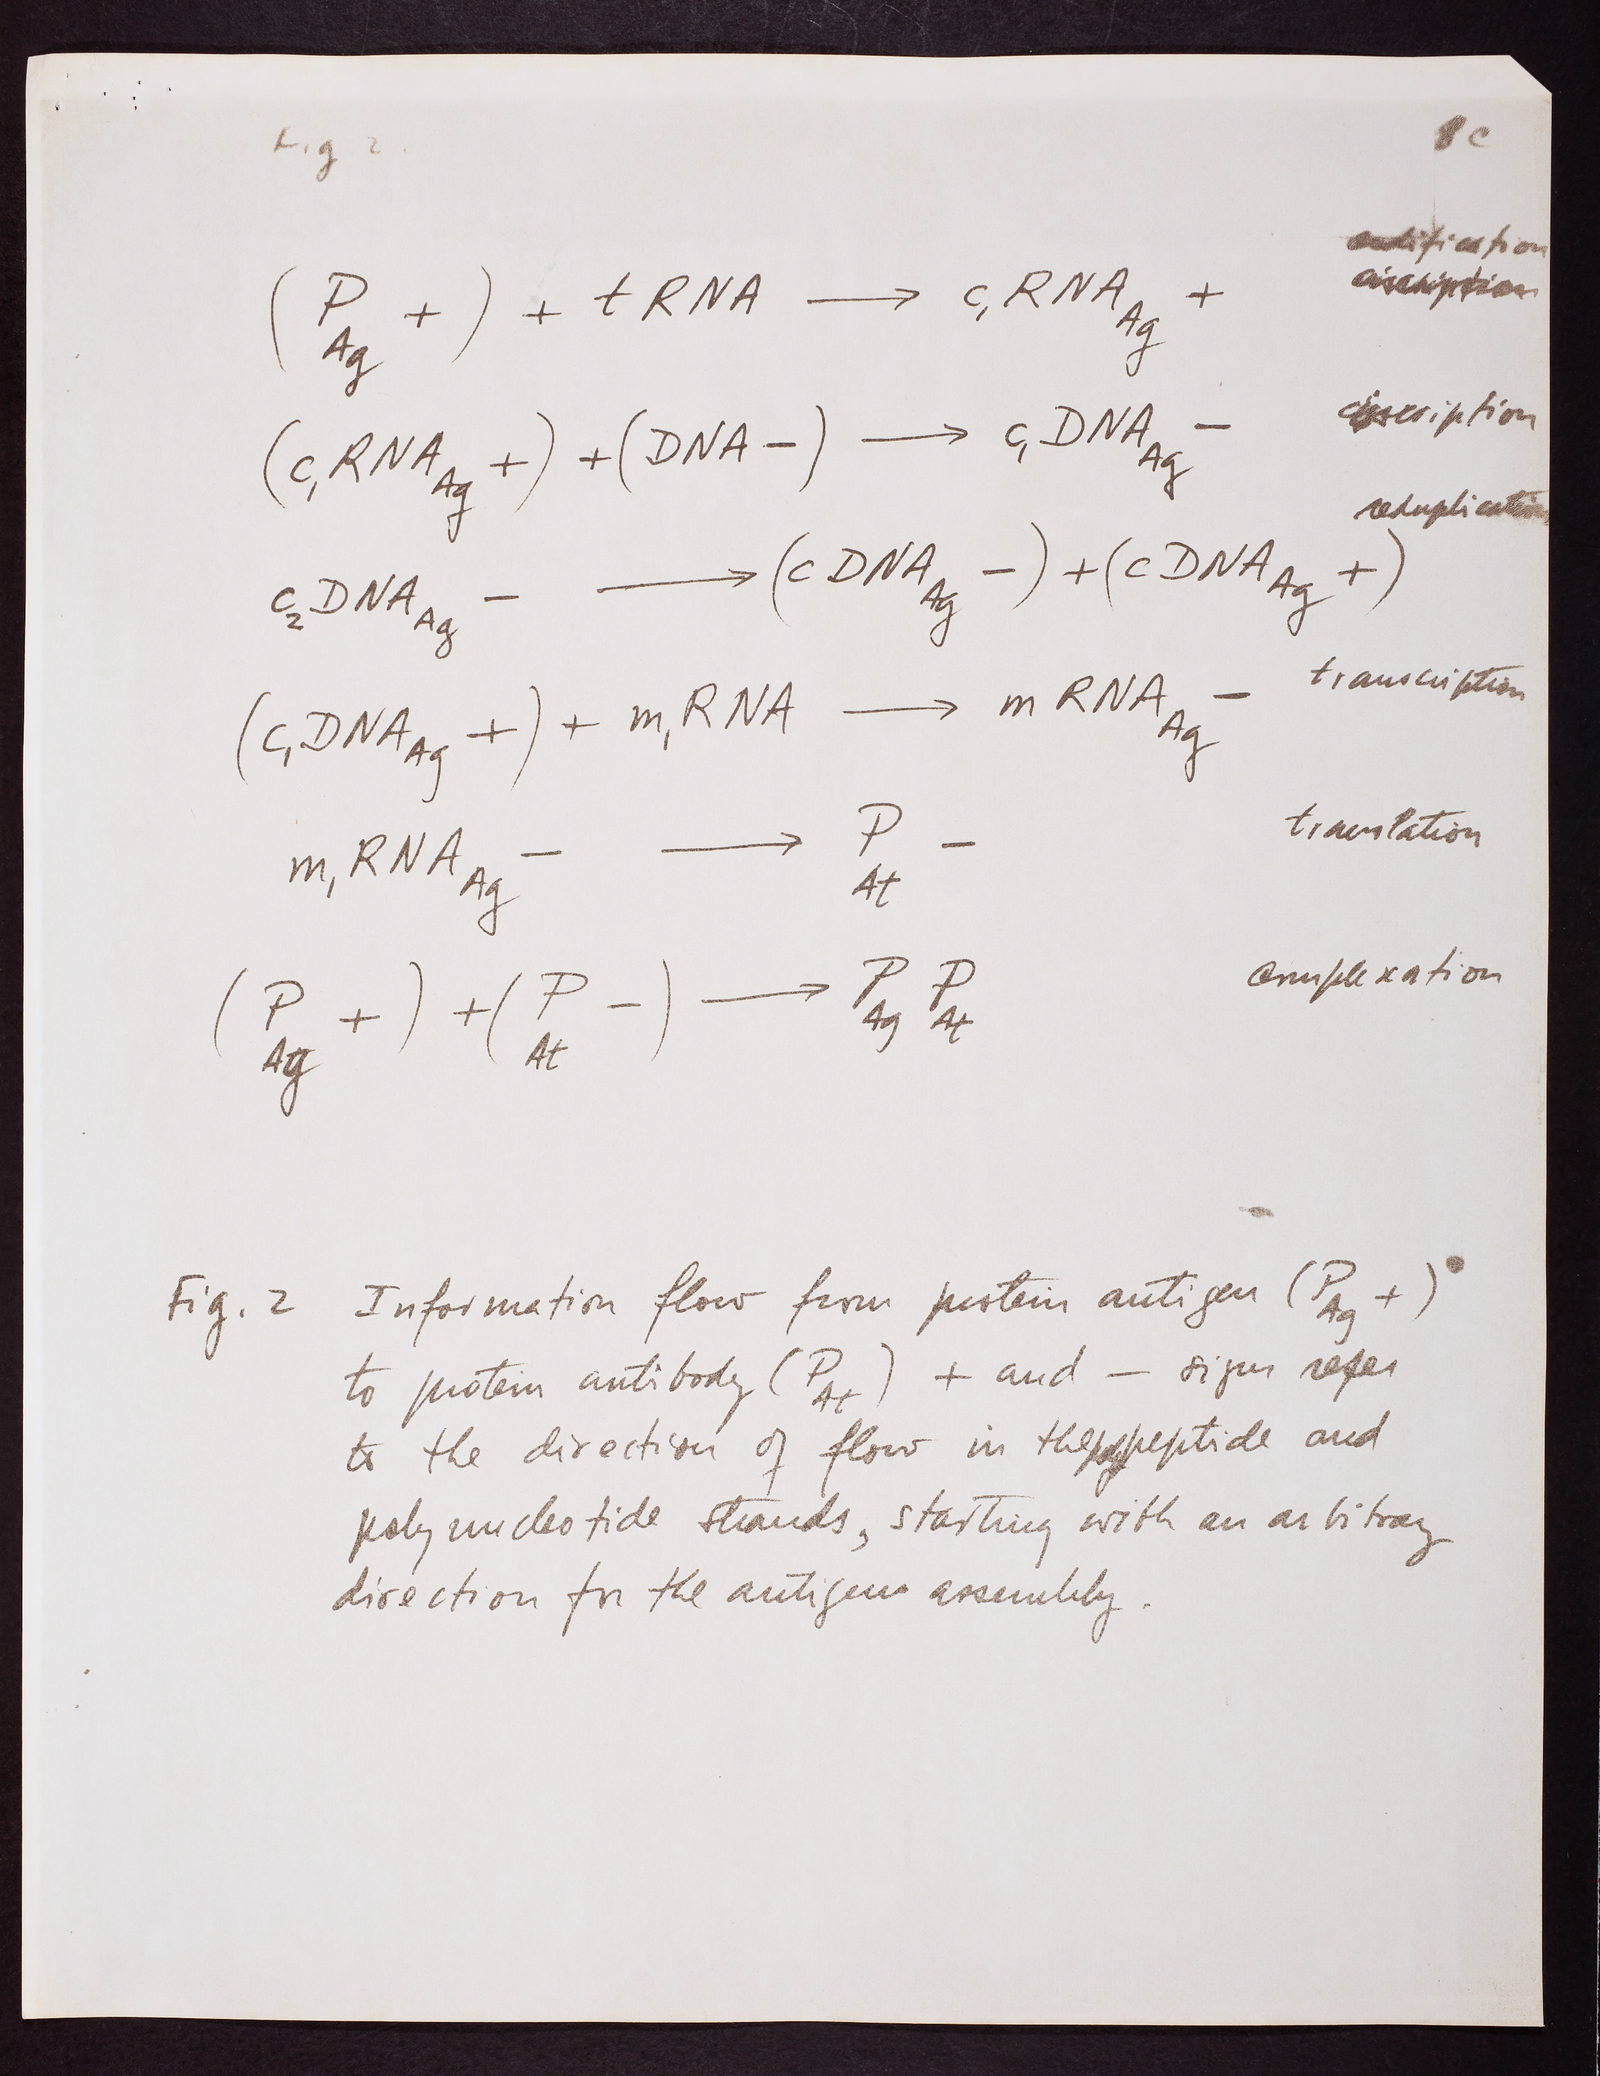 Fig 2.
8c
(P Ag +) + tRNA → c₁RNA Ag +
(c₁RNA Ag +) + (DNA −) → c₁DNA Ag − inscription
reduplication
c₂DNA Ag − → (cDNA Ag −) + (cDNA Ag +)
(c₁DNA Ag +) + m₁RNA → mRNA Ag − transcription
m₁RNA Ag − → P At − translation
(P Ag +) + (P At −) → P Ag P At complexation
Fig. 2 Information flow from protein antigen (P Ag +)
to protein antibody (P At) + and − signs refer
to the direction of flow in the peptide and
polynucleotide strands, starting with an arbitrary
direction for the antigen assembly.